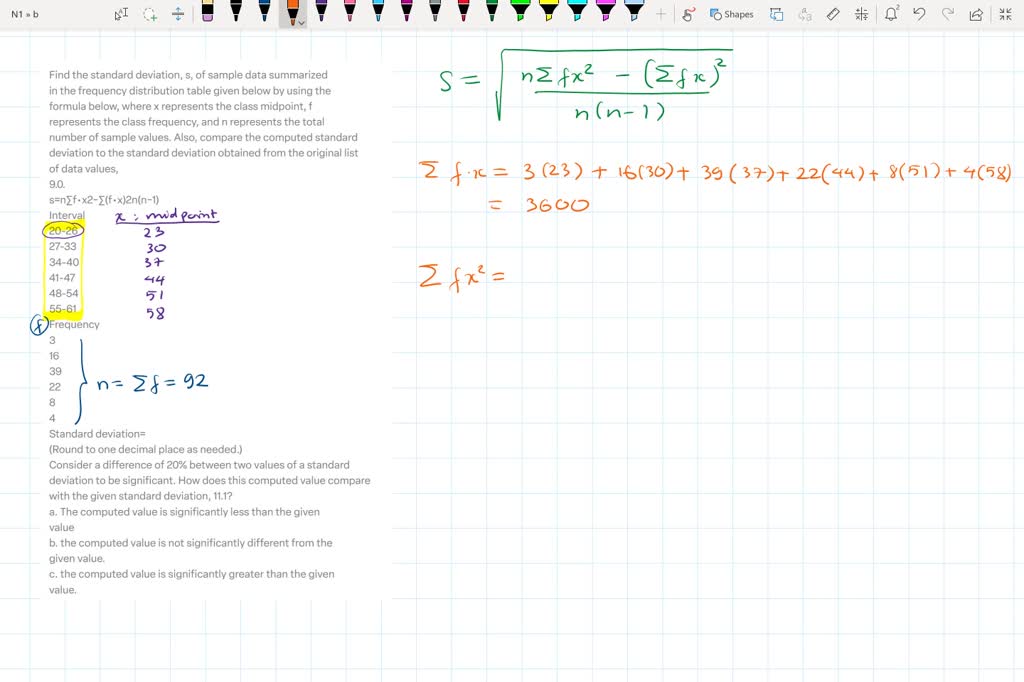 N1 » b
Shapes
2
Find the standard deviation, s, of sample data summarized
in the frequency distribution table given below by using the
formula below, where x represents the class midpoint, f
represents the class frequency, and n represents the total
number of sample values. Also, compare the computed standard
deviation to the standard deviation obtained from the original list
of data values,
9.0.
s=n∑f·x2−∑(f·x)2n(n−1)
Interval
x : midpoint
20-26 23
27-33 30
34-40 37
41-47 44
48-54 51
55-61 58
f Frequency
3
16
39
22
8
4
n = Σf = 92
Standard deviation=
(Round to one decimal place as needed.)
Consider a difference of 20% between two values of a standard
deviation to be significant. How does this computed value compare
with the given standard deviation, 11.1?
a. The computed value is significantly less than the given
value
b. the computed value is not significantly different from the
given value.
c. the computed value is significantly greater than the given
value.
S = √ nΣfx² − (Σfx)²
n(n−1)
Σ f·x = 3(23) + 16(30) + 39(37) + 22(44) + 8(51) + 4(58)
= 3600
Σ fx² =